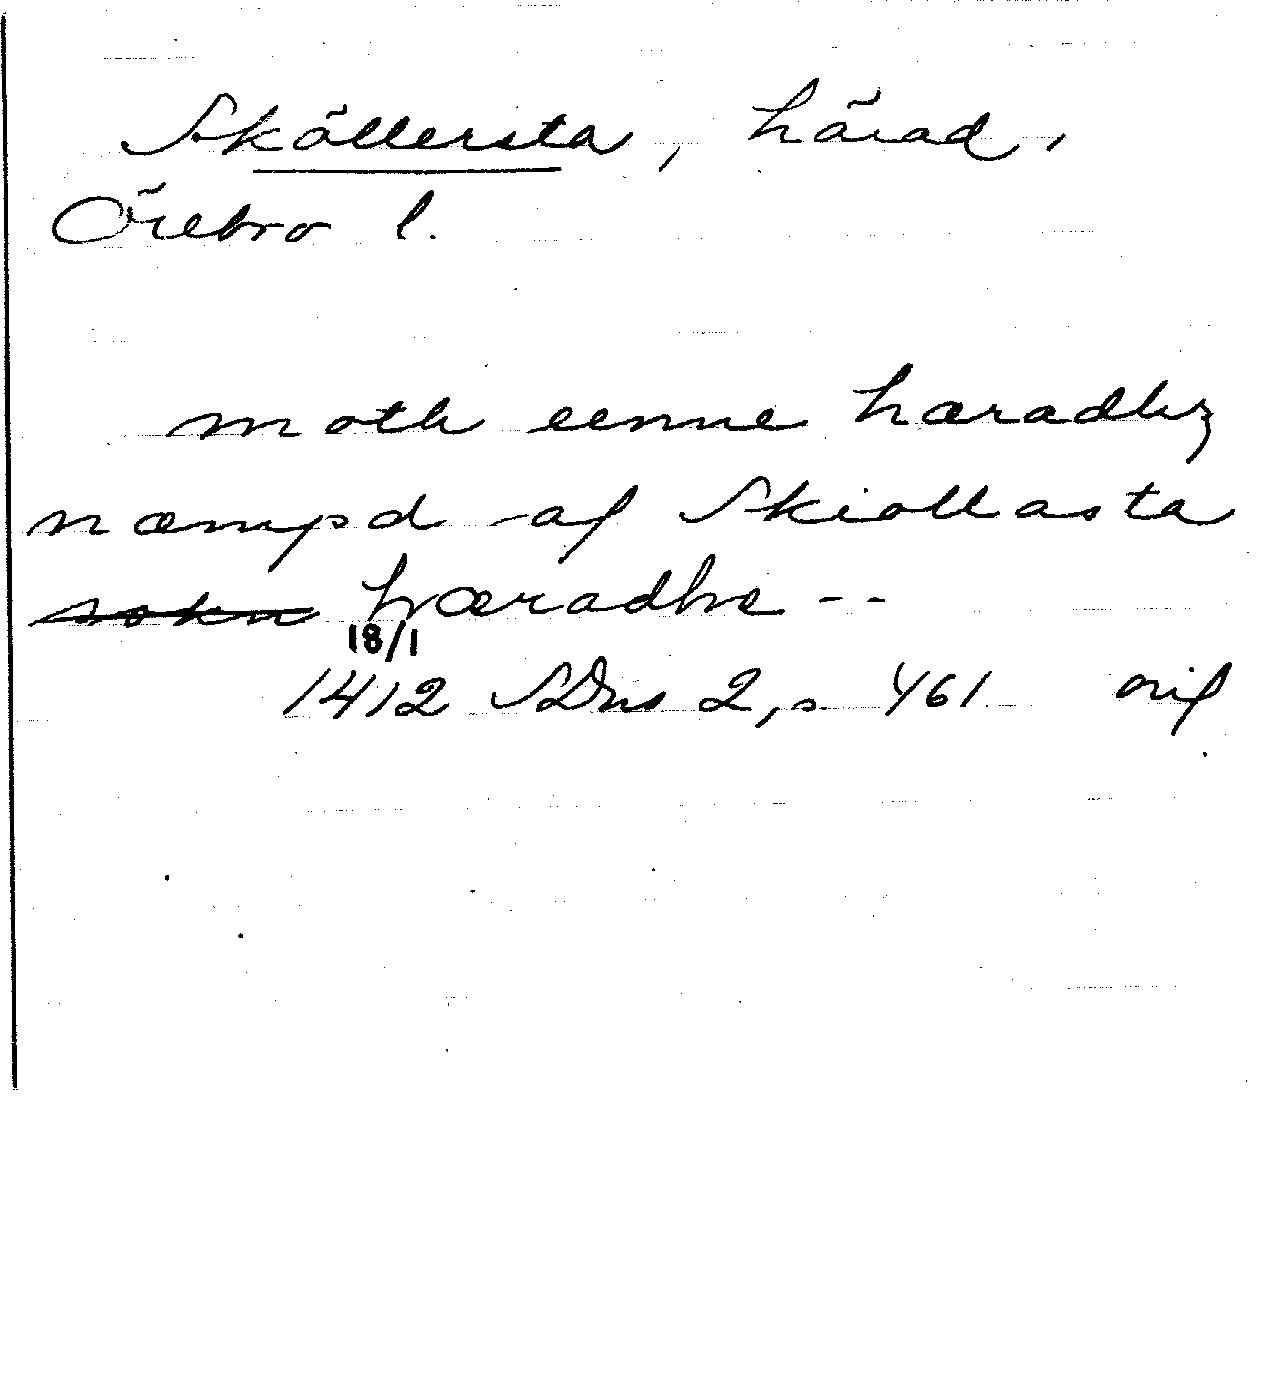 Sköllersta, härad,
Örebro l.
moth eenne hæradhz
næmpd af Skiollasta
sokn hæradhe --
18/1
1412 SDns 2, s. 461 orig